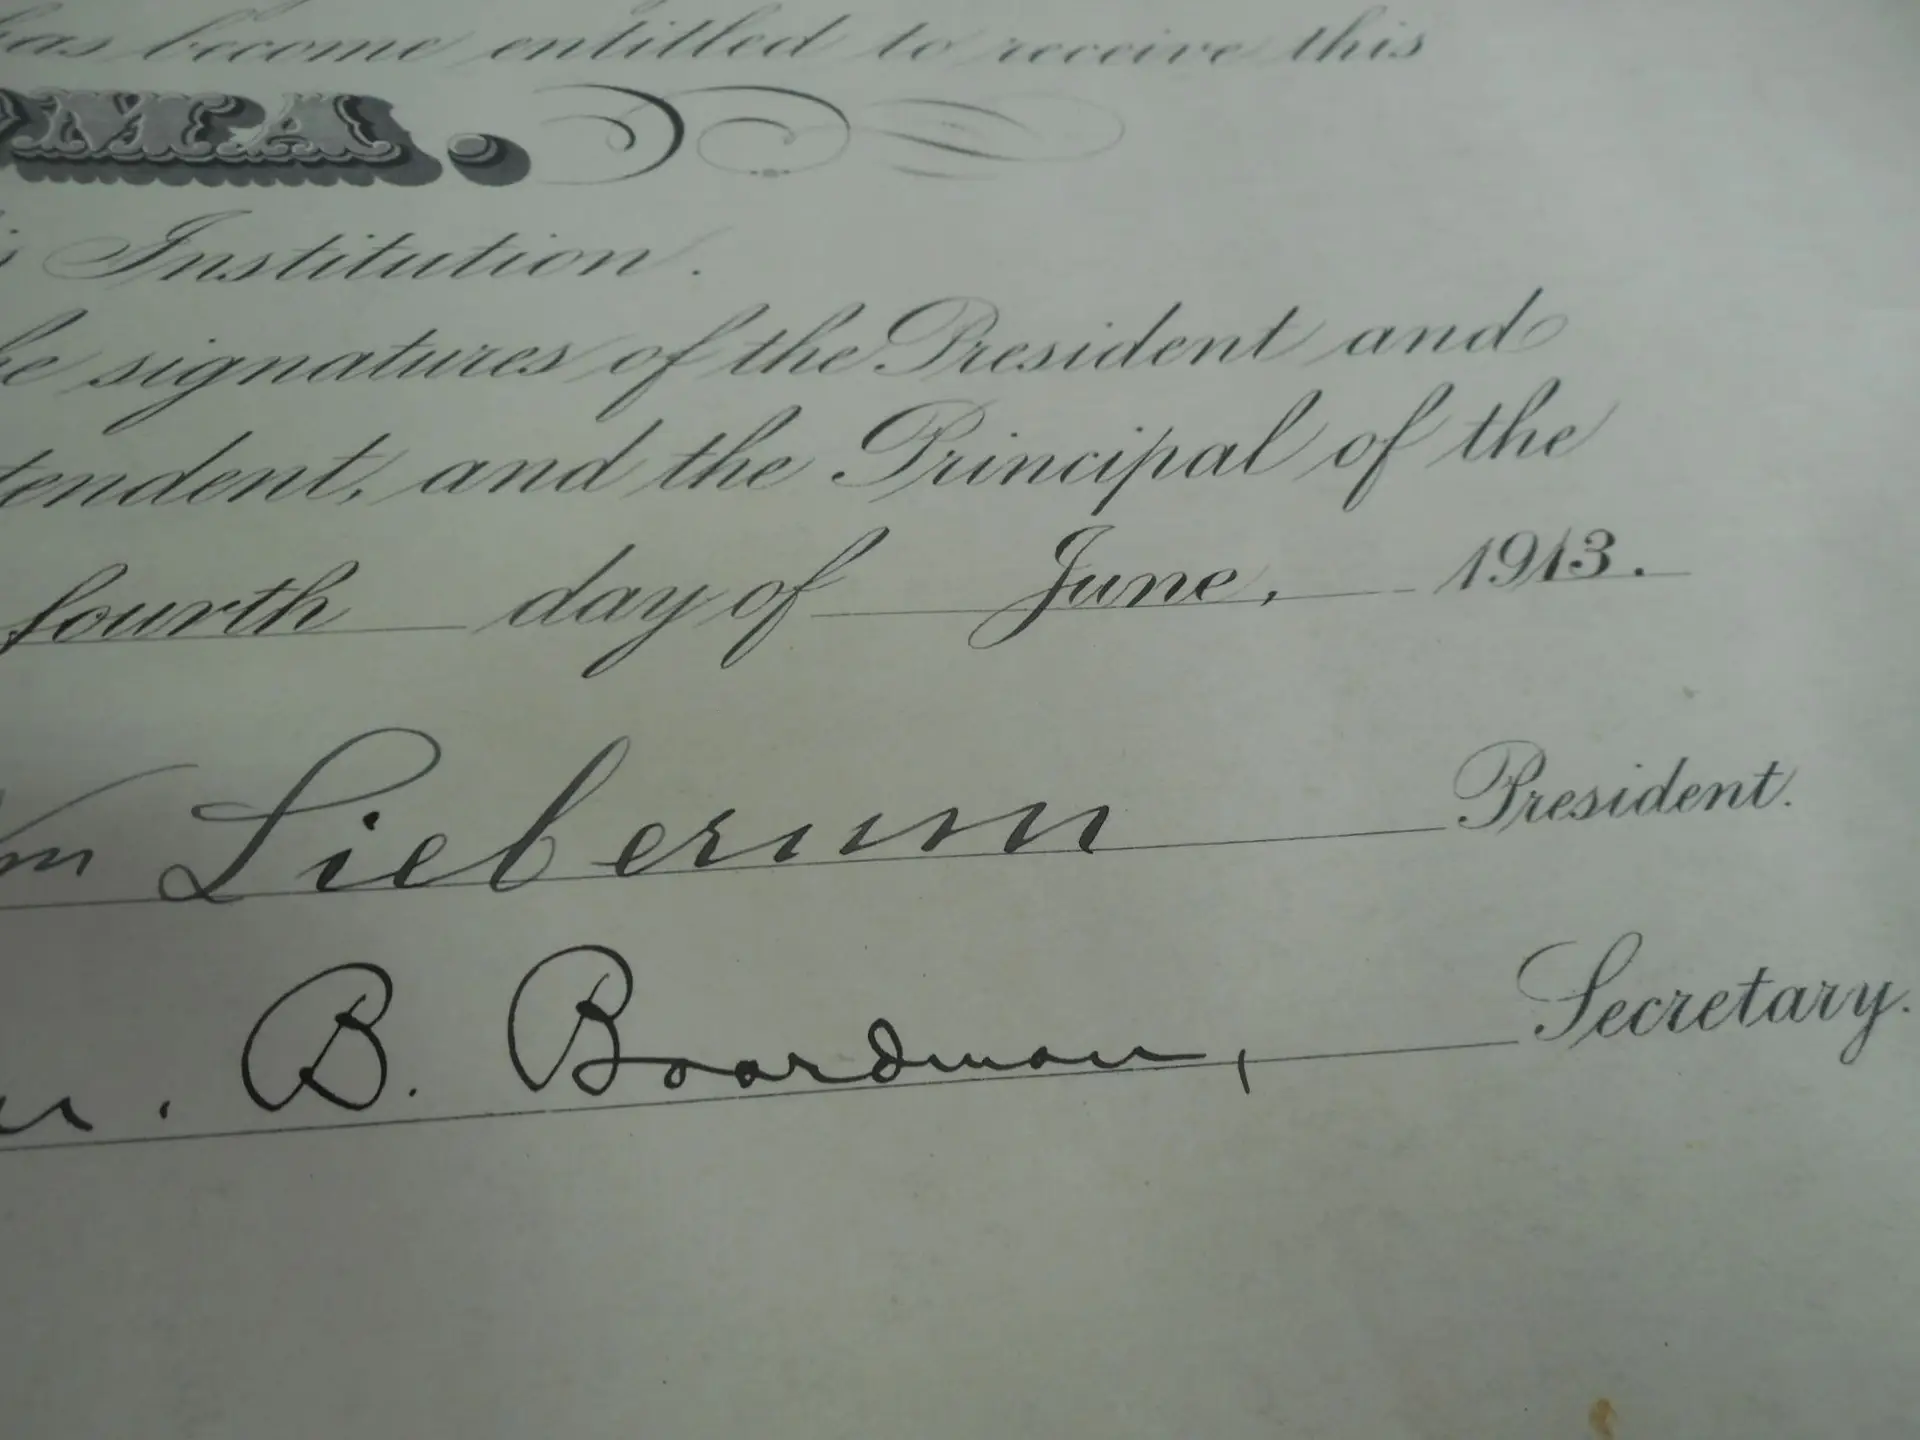 has become entitled to receive this
OMA.
Institution.
signatures of the President and
tendent, and the Principal of the
fourth day of June, 1913.
Wm Lieberum President.
B. Boardman, Secretary.